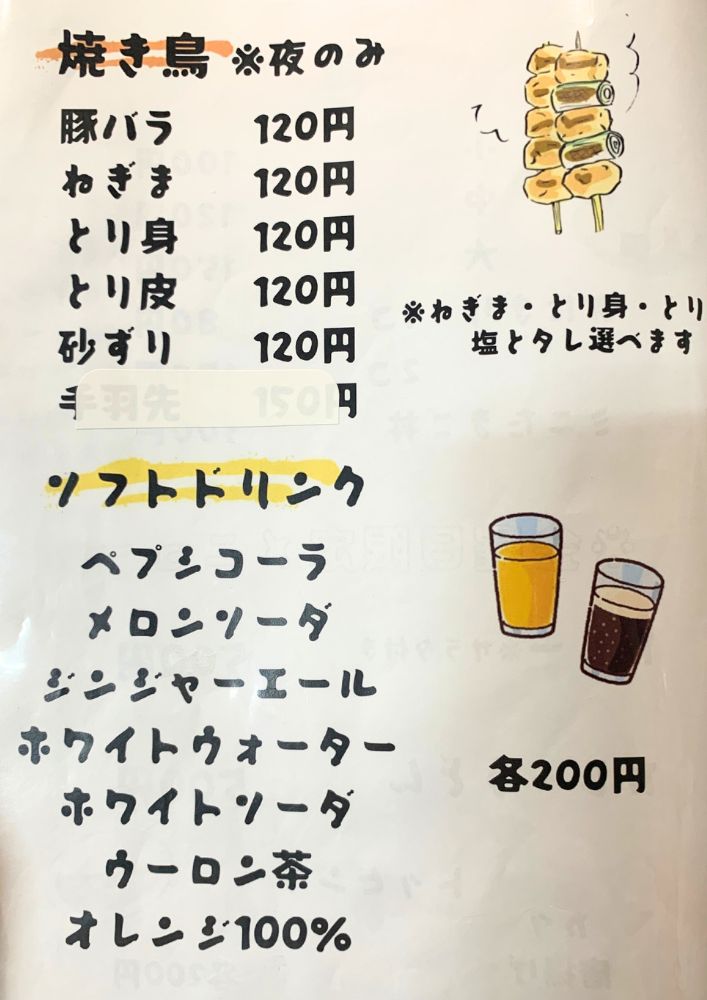 焼き鳥 ※夜のみ
豚バラ 120円
ねぎま 120円
とり身 120円
とり皮 120円
砂ずり 120円
手羽先 150円
※ねぎま・とり身・とり
塩とタレ選べます
ソフトドリンク
ペプシコーラ
メロンソーダ
ジンジャーエール
ホワイトウォーター
ホワイトソーダ
ウーロン茶
オレンジ100%
各200円